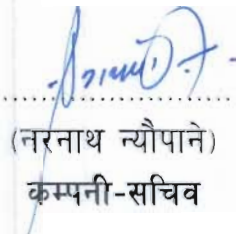 (नरनाथ न्यौपाने)
कम्पनी-सचिव